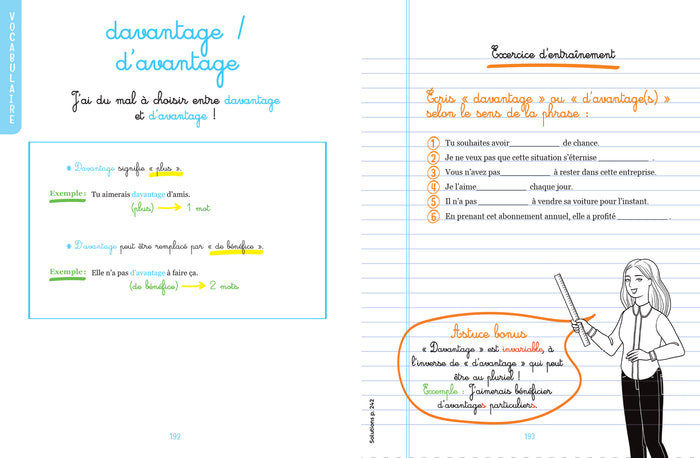 VOCABULAIRE
davantage /
d'avantage
J'ai du mal à choisir entre davantage
et d'avantage !
Davantage signifie « plus ».
Exemple : Tu aimerais davantage d'amis.
(plus) → 1 mot
D'avantage peut être remplacé par « de bénéfice ».
Exemple : Elle n'a pas d'avantage à faire ça.
(de bénéfice) → 2 mots
192
Exercice d'entraînement
Écris « davantage » ou « d'avantage(s) »
selon le sens de la phrase :
1 Tu souhaites avoir____________ de chance.
2 Je ne veux pas que cette situation s'éternise ____________ .
3 Vous n'avez pas____________ à rester dans cette entreprise.
4 Je l'aime____________ chaque jour.
5 Il n'a pas ____________ à vendre sa voiture pour l'instant.
6 En prenant cet abonnement annuel, elle a profité ____________ .
Astuce bonus
« Davantage » est invariable, à
l'inverse de « d'avantage » qui peut
être au pluriel !
Exemple : J'aimerais bénéficier
d'avantages particuliers.
Solutions p. 242
193